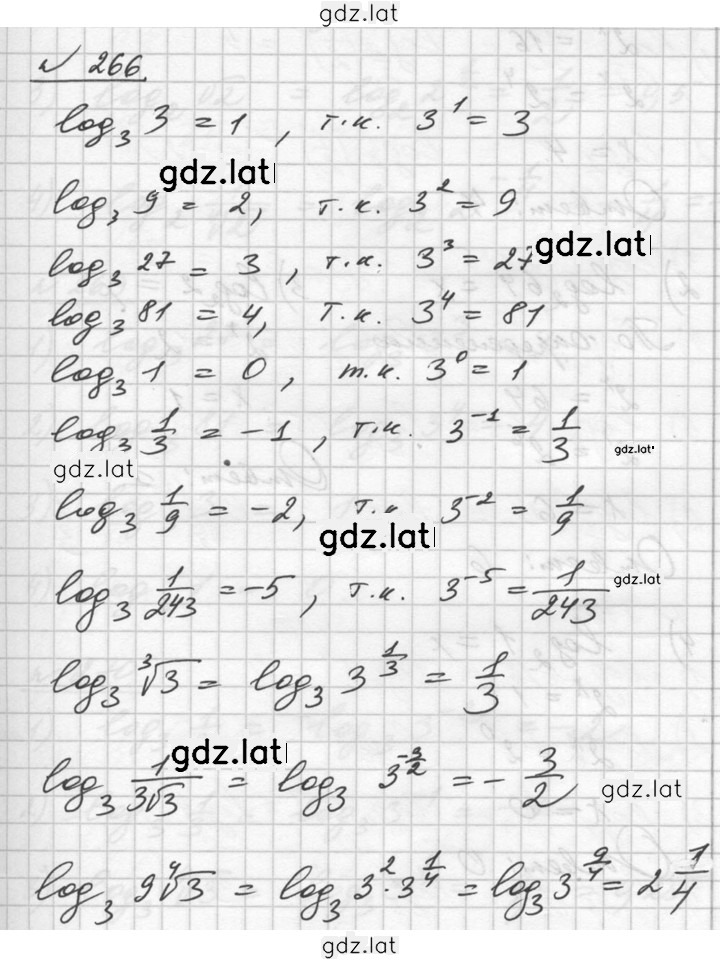 gdz.lat
№ 266
log₃ 3 = 1, т.к. 3¹ = 3
gdz.lat
log₃ 9 = 2, т.к. 3² = 9
gdz.lat
log₃ 27 = 3, т.к. 3³ = 27
log₃ 81 = 4, т.к. 3⁴ = 81
log₃ 1 = 0, т.к. 3⁰ = 1
log₃ 1/3 = -1, т.к. 3⁻¹ = 1/3
gdz.lat
gdz.lat
log₃ 1/9 = -2, т.к. 3⁻² = 1/9
gdz.lat
log₃ 1/243 = -5, т.к. 3⁻⁵ = 1/243
gdz.lat
log₃ ∛3 = log₃ 3^(1/3) = 1/3
gdz.lat
log₃ 1/(3√3) = log₃ 3^(-3/2) = -3/2
gdz.lat
log₃ 9∜3 = log₃ 3² · 3^(1/4) = log₃ 3^(9/4) = 2 1/4
gdz.lat